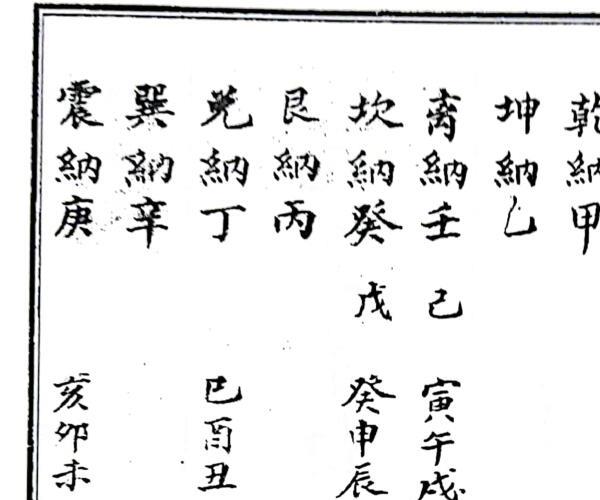 乾納甲
坤納乙
离納壬 己 寅午戌
坎納癸 戊 癸申辰
艮納丙
兑納丁 巳酉丑
巽納辛
震納庚 亥卯未